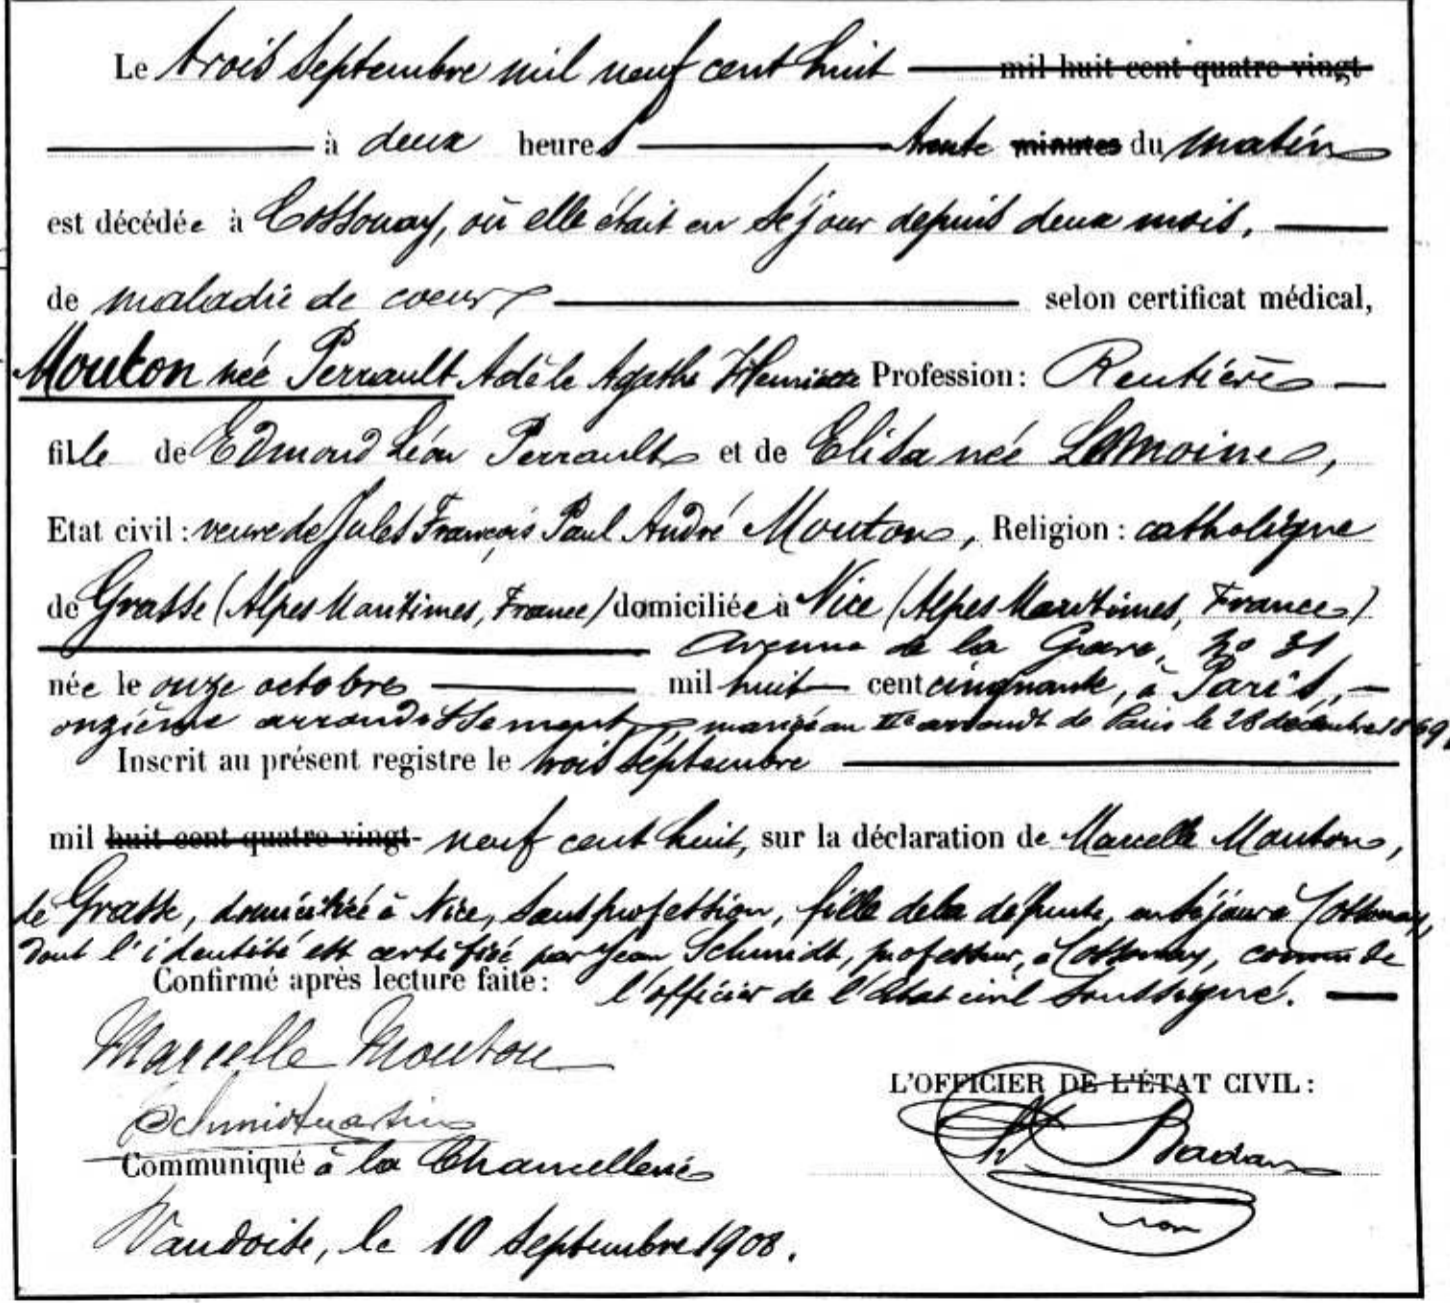 Le trois Septembre mil neuf cent huit mil huit cent quatre-vingt
à deux heures trente minutes du matin
est décédée à Cossonay, où elle était en séjour depuis deux mois.
de maladie de coeur selon certificat médical,
Mouton née Perrault Adèle Agathe Henriette Profession: Rentière
fille de Edmond Léon Perrault et de Elisa née Lemoine,
Etat civil: veuve de Jules François Paul André Mouton, Religion: catholique
de Grasse (Alpes Maritimes, France) domiciliée à Nice (Alpes Maritimes, France)
Avenue de la Gare, No 31
née le onze octobre mil huit cent cinquante, à Paris,
onzième arrondissement, mariée au IIe arrondt de Paris le 28 décembre 1869.
Inscrit au présent registre le trois septembre
mil huit cent quatre-vingt- neuf cent huit, sur la déclaration de Marcelle Mouton,
de Grasse, domiciliée à Nice, sans profession, fille de la défunte, en séjour à Cossonay,
dont l'identité est certifiée par Jean Schmidt, professeur, à Cossonay, connu de
Confirmé après lecture faite: l'officier de l'état civil soussigné.
Marcelle Mouton
L'OFFICIER DE L'ÉTAT CIVIL:
Communiqué à la Chancellerie
Vaudoise, le 10 Septembre 1908.